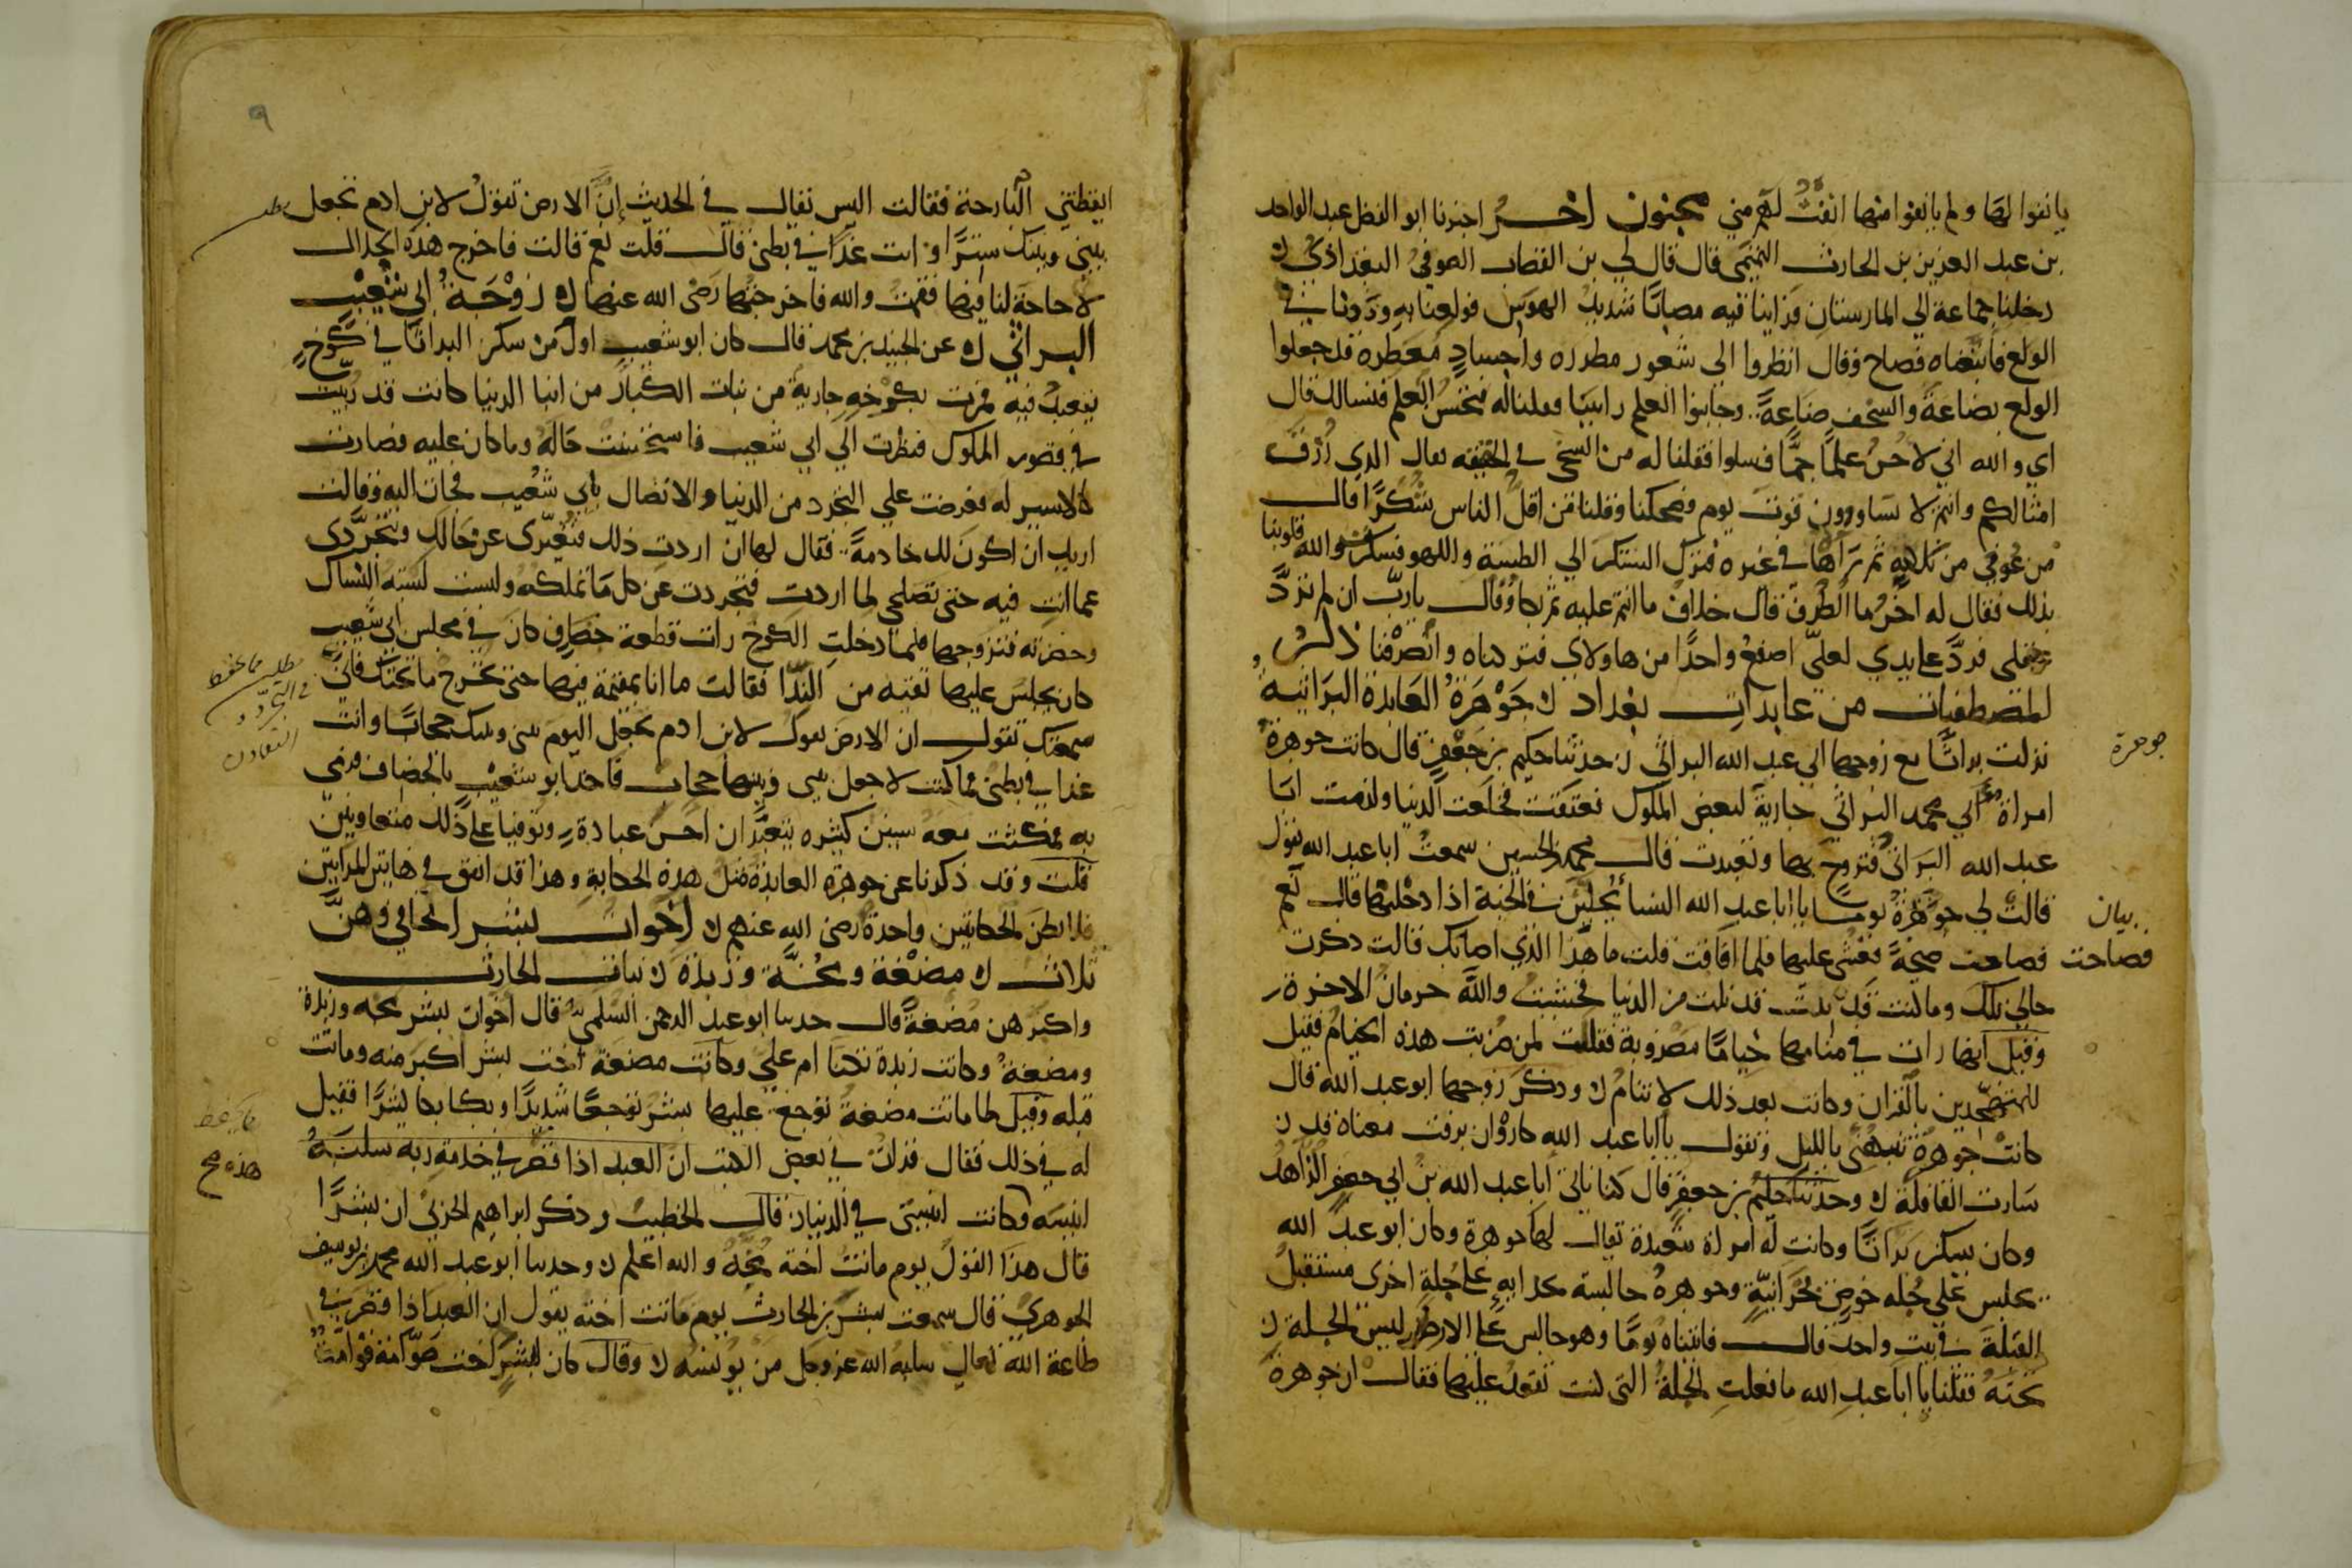 يانفوا لها ولم يانفوا منها انفت لهم مني مجنون اخر اخبرنا ابو الفضل عبد الواحد
بن عبد العزيز بن الحارث التميمي قال قال لي بن القصاب الصوفي البغداذي
دخلنا جماعة الي المارستان فراينا فيه مصابا شديد الهوس فولعنا به وزدنا في
الولع فاتبعناه فصاح وقال انظروا الي شعور مطرره واجساد معطره قد جعلوا
الولع بضاعة والسخف صناعة وجانبوا العلم راسا فقلنا له فتحسن العلم فنسالك قال
اي والله اني لاحسن علما جما فسلوا فقلنا له من السخي في الحقيقه قال الذي رزق
امثالكم وانتم لا تساوون قوت يوم فضحكنا وقلنا من اقل الناس شكرا قال
من عوفي من بلية ثم رآها في غيره فترك الشكر الي الطيبة واللهو فكسر والله قلوبنا
بذلك فقال له اخر ما الظرف قال خلاف ما انتم عليه ثم بكا وقال يا رب ان لم ترد
عقلي فرد علي يدي لعلي اصفع واحدا من هاولاي فتركناه وانصرفنا ذكر
المصطفيات من عابدات بغداد جوهرة العابدة البراثية
نزلت براثا مع زوجها ابي عبد الله البراثي حدثنا حكيم بن جعفر قال كانت جوهرة
امراة ابي محمد البراثي جارية لبعض الملوك فعتقت فخلعت الدنيا ولزمت ابا
عبد الله البراثي فتزوج بها وتعبدت قال محمد بن الحسين سمعت ابا عبد الله يقول
قالت لي جوهرة يوما يا ابا عبد الله النسا يحلين في الجنة اذا دخلنها قال نعم
فصاحت صيحة فغشي عليها فلما افاقت قلت ما هذا الذي اصابك قالت ذكرت
حالي تلك وما كنت قد نلت من الدنيا فخشيت والله حرمان الاخرة
وقيل انها رات في منامها خياما مضروبة فقالت لمن ضربت هذه الخيام فقيل
للمتهجدين بالقران وكانت بعد ذلك لا تنام وذكر زوجها ابو عبد الله قال
كانت جوهرة تنبهني بالليل وتقول يا ابا عبد الله كاروان برفت معناه قد
سارت القافلة وحدثنا حكيم بن جعفر قال كنا ناتي ابا عبد الله بن ابي جعفر الزاهد
وكان يسكن براثا وكانت له امراة متعبدة يقال لها جوهرة وكان ابو عبد الله
يجلس علي جلة خوص بحرانية وجوهرة جالسة حذايه علي جلة اخري مستقبل
القبلة في بيت واحد قال فاتيناه يوما وهو جالس علي الارض ليس الجلة
تحته فقلنا يا ابا عبد الله ما فعلت الجلة التي كنت تقعد عليها فقال ان جوهرة
جوهرة
بيان
فصاحت
٩
ايقظتني البارحة فقالت اليس يقال في الحديث ان الارض تقول لابن ادم تجعل
بيني وبينك سترا وانت غدا في بطني قال قلت نعم قالت فاخرج هذه الجلال
لا حاجة لنا فيها فقمت والله فاخرجتها رضي الله عنها زوجة ابي شعيب
البراثي عن الجنيد بن محمد قال كان ابو شعيب اول من سكن البراثا في كوخ
يتعبد فيه فمرت بكوخه جارية من بنات الكبار من ابنا الدنيا كانت قد ربيت
في قصور الملوك فنظرت الي ابي شعيب فاستحسنت حاله وما كان عليه فصارت
كالاسير له فعزمت علي التجرد من الدنيا والاتصال بابي شعيب فجات اليه وقالت
اريد ان اكون لك خادمة فقال لها ان اردت ذلك فتعري عن حالك وتجردي
عما انت فيه حتي تصلحي لما اردت فتجردت عن كل ما تملكه ولبست لبسة النساك
وحضرته فتزوجها فلما دخلت الكوخ رات قطعة خصاف كان في مجلس ابي شعيب
كان يجلس عليها تقيه من الندا فقالت ما انا بمقيمة فيها حتي تخرج ما تحتك فاني
سمعتك تقول ان الارض تقول لابن ادم تجعل اليوم بيني وبينك حجابا وانت
غدا في بطني فما كنت لاجعل بيني وبينها حجاب فاخذ ابو شعيب بالخصاف فرمي
به فمكثت معه سنين كثيره يتعبدان احسن عبادة وتوفيا علي ذلك متعاونين
قلت وقد ذكرنا عن جوهرة العابدة مثل هذه الحكاية وهذا قد اتفق في هاتين المراتين
فلا تظن الحكايتين واحدة رضي الله عنهم اخوات لبشر الحافي وهن
ثلاث مضغة ومخة وزبدة بنات الحارث
واكبرهن مضغة قال حدثنا ابو عبد الرحمن السلمي قال اخوات بشر مخه وزبدة
ومضغة وكانت زبدة تكنا ام علي وكانت مضغة اخت بشر اكبر منه وماتت
قبله وقيل لما ماتت مضغة توجع عليها بشر توجعا شديدا وبكا بكا كثيرا فقيل
له في ذلك فقال قرات في بعض الكتب ان العبد اذا قصر في خدمة ربه سلبه
انيسه وكانت انيستي في الدنيا قال الخطيب وذكر ابراهيم الحربي ان بشرا
قال هذا القول يوم ماتت اخته مخة والله اعلم وحدثنا ابو عبد الله محمد بن يوسف
الجوهري قال سمعت بشر بن الحارث يوم ماتت اخته يقول ان العبد اذا قصر في
طاعة الله تعالي سلبه الله عز وجل من يونسه وقال كان لبشر اخت صوامة قوامة
مطلب
هذه صح